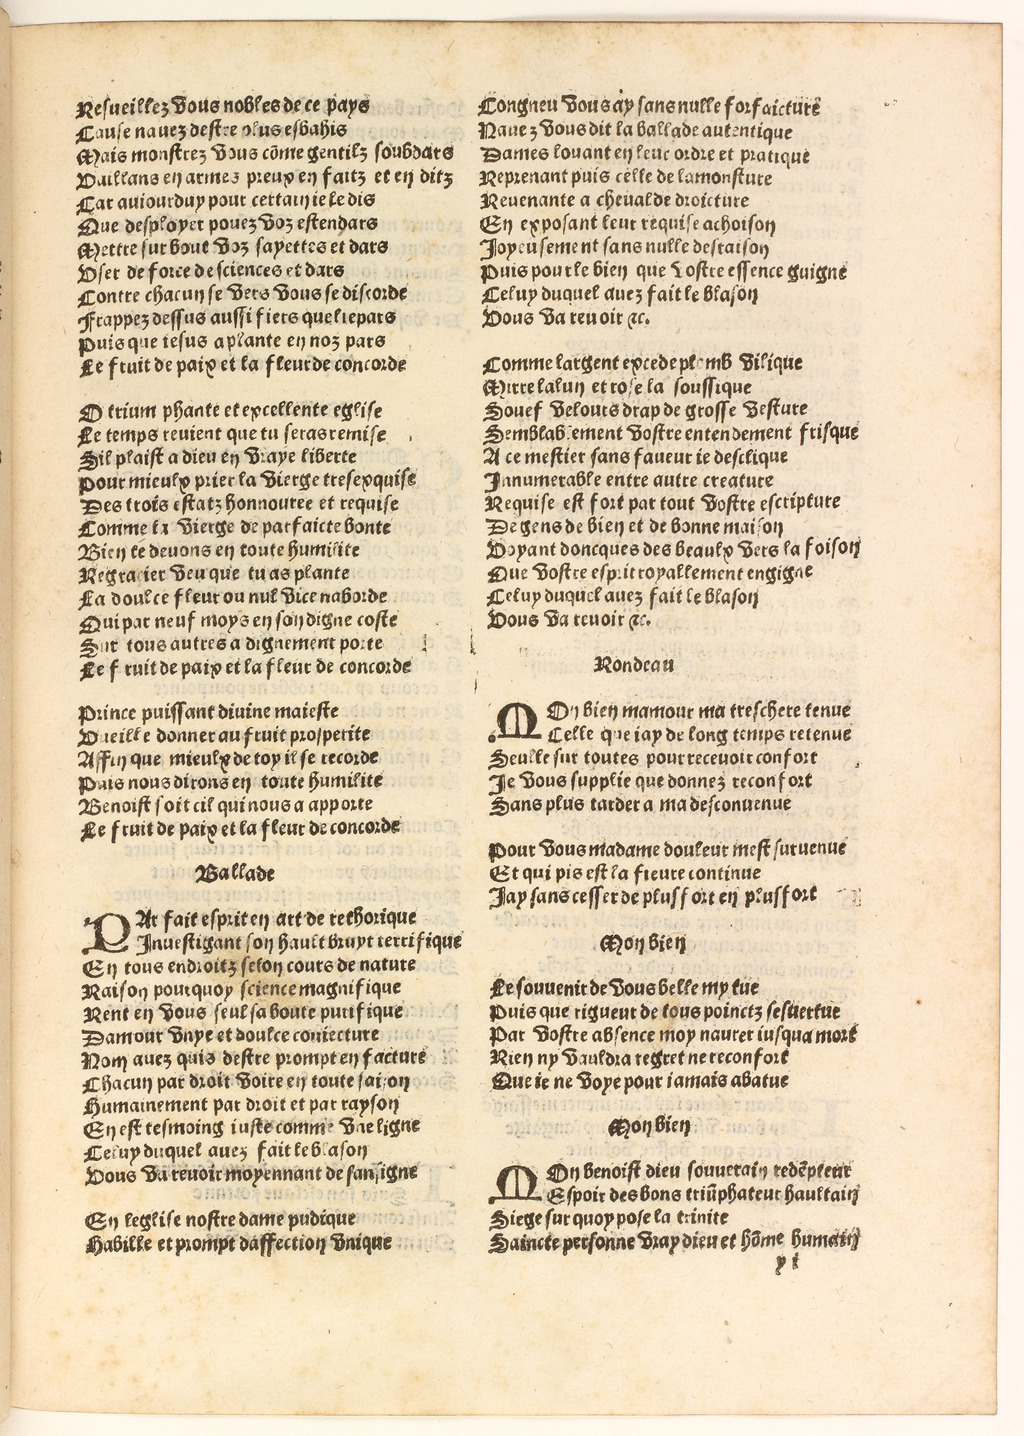 Resueillez vous nobles de ce pays
Cause nauez destre plus esbahis
Mais monstrez vous cōme gentilz soubdars
Vaillans en armes preux en faitz et en ditz
Car auiourduy pour certain ie le dis
Que desployer pouez voz estendars
Mettre sur bout voz sayettes et dars
Vser de force de sciences et dars
Contre chacun se vers vous se discorde
Frappez dessus aussi fiers que liepars
Puis que iesus a plante en noz pars
Le fruit de paix et la fleur de concorde
O triumphante et excellente eglise
Le temps reuient que tu seras remise
Sil plaist a dieu en vraye liberte
Pour mieulx prier la vierge tresexquise
Des trois estatz honnouree et requise
Comme la vierge de parfaicte bonte
Bien te deuons en toute humilite
Regracier veu que tu as plante
La doulce fleur ou nul vice naborde
Qui par neuf moys en son digne coste
Sur tous autres a dignement porte
Le fruit de paix et la fleur de concorde
Prince puissant diuine maieste
Vueille donner au fruit prosperite
Affin que mieulx de toy il se recorde
Puis nous dirons en toute humilite
Benoist soit cil qui nous a apporte
Le fruit de paix et la fleur de concorde
Ballade
PAr fait esprit en art de rethorique
Inuestigant son hault bruyt terrifique
En tous endroitz selon cours de nature
Raison pourquoy science magnifique
Rent en vous seul sa boute purifique
Damour vnye et doulce coniecture
Nom auez quis destre prompt en facture
Chacun par droit voire en toute saison
Humainement par droit et par rayson
En est tesmoing iuste comme vne ligne
Celuy duquel auez fait le blason
Vous va reuoir moyennant de san signe
En leglise nostre dame pudique
Habille et prompt daffection vnique
Congneu vous ay sans nulle forfaicture
Nauez vous dit la ballade autentique
Dames louant en leur ordre et pratique
Reprenant puis celle de la monsture
Reuenante a cheual de droicture
En exposant leur requise achoison
Joyeusement sans nulle destaison
Puis pour le bien que vostre essence guigne
Celuy duquel auez fait le blason
Vous va reuoir ꝛc.
Comme largent excede plomb vilique
Mirre lalun et rose la soussique
Souef velours drap de grosse vesture
Semblablement vostre entendement frisque
A ce mestier sans faueur ie desclique
Innumerable entre autre creature
Requise est fort par tout vostre escripture
De gens de bien et de bonne maison
Voyant doncques des beaulx vers la foison
Que vostre esprit royallement engigne
Celuy duquel auez fait le blason
Vous va reuoir ꝛc.
Rondeau
MOn bien mamour ma treschere tenue
Celle que iay de long temps retenue
Seulle sur toutes pour receuoir confort
Je vous supplie que donnez reconfort
Sans plus tarder a ma desconuenue
Pour vous madame douleur mest suruenue
Et qui pis est la fieure continue
Jay sans cesser de plus fort en plus fort
Mon bien
Le souuenir de vous belle my tue
Puis que rigueur de tous poinctz sesuertue
Par vostre absence moy naurer iusqua mort
Rien ny vauldra regret ne reconfort
Que ie ne voye pour iamais abatue
Mon bien
MOn benoist dieu souuerain redēpteur
Espoir des bons triūphateur haultain
Siege sur quoy pose la trinite
Saincte personne vray dieu et hōme humain
y i